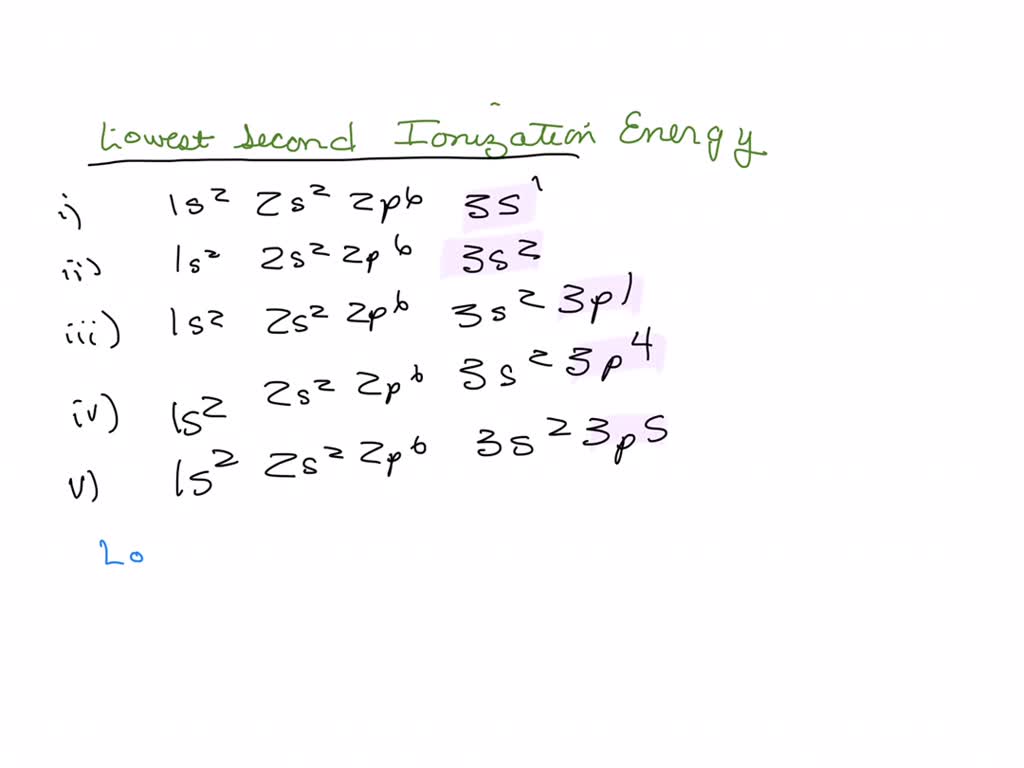 Lowest Second Ionization Energy
i) 1s² 2s² 2p⁶ 3s¹
ii) 1s² 2s² 2p⁶ 3s²
iii) 1s² 2s² 2p⁶ 3s² 3p¹
iv) 1s² 2s² 2p⁶ 3s² 3p⁴
v) 1s² 2s² 2p⁶ 3s² 3p⁵
Lo